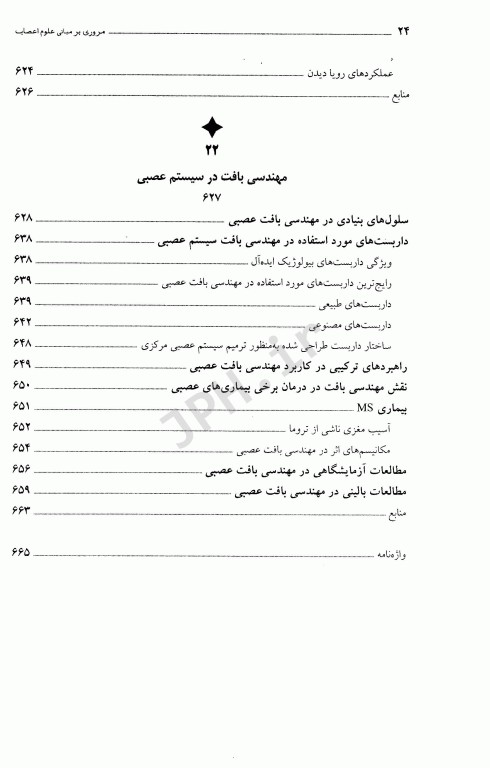 ۲۴ مروری بر مبانی علوم اعصاب
عملکردهای رویا دیدن ۶۲۴
منابع ۶۲۶
۲۲
مهندسی بافت در سیستم عصبی
۶۲۷
سلول‌های بنیادی در مهندسی بافت عصبی ۶۲۸
داربست‌های مورد استفاده در مهندسی بافت سیستم عصبی ۶۳۸
ویژگی داربست‌های بیولوژیک ایده‌آل ۶۳۸
رایج‌ترین داربست‌های مورد استفاده در مهندسی بافت عصبی ۶۳۹
داربست‌های طبیعی ۶۳۹
داربست‌های مصنوعی ۶۴۲
ساختار داربست طراحی شده به‌منظور ترمیم سیستم عصبی مرکزی ۶۴۸
راهبردهای ترکیبی در کاربرد مهندسی بافت عصبی ۶۴۹
نقش مهندسی بافت در درمان برخی بیماری‌های عصبی ۶۵۰
بیماری MS ۶۵۱
آسیب مغزی ناشی از تروما ۶۵۲
مکانیسم‌های اثر در مهندسی بافت عصبی ۶۵۴
مطالعات آزمایشگاهی در مهندسی بافت عصبی ۶۵۶
مطالعات بالینی در مهندسی بافت عصبی ۶۵۹
منابع ۶۶۳
واژه‌نامه ۶۶۵
JPH.ir